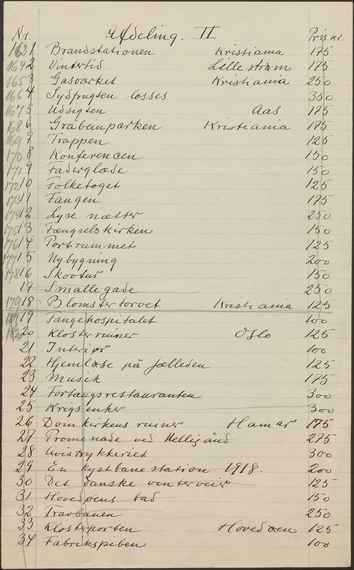 Nr. Afdeling. II. Pris kr.
1 Brandstationen Kristiania 175
2 Vintertid Lillestrøm 175
3 Gasværket Kristiania 250
4 Sydfrugten losses 300
5 Udsigten Aas 175
6 Grabenparken Kristiania 175
7 Trappen 125
8 Konferencen 150
9 Faderglæde 150
10 Folketoget 125
11 Fangen 175
12 Lyse nætter 250
13 Fængselskirken 150
14 Portrummet 125
15 Nybygning 200
16 Skovtur 150
17 Smallegade 250
18 Blomstertorvet Kristiania 125
19 Sangehospitalet 100
20 Klosterruiner Oslo 125
21 Interiør 100
22 Hjemløse på fælleden 125
23 Musik 175
24 Fortaugsrestauranten 300
25 Krigsenker 300
26 Domkirkens ruiner Hamar 175
27 Promenade ved Helligånd 275
28 Avistrykkeriet 300
29 En kystbanestation 1918. 200
30 Det danske vinterveir 125
31 Hovedøens bad 150
32 Travbanen 250
33 Klosterporten Hovedøen 125
34 Fabrikspiben 100